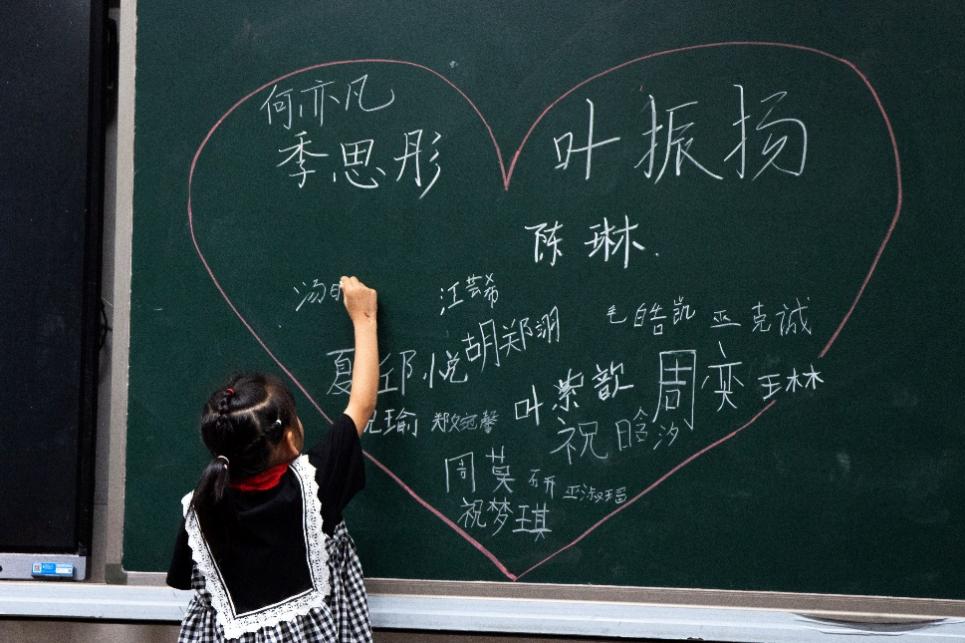 何亦凡
季思彤
叶振扬
陈琳.
汤
江芸希
毛皓凯
巫克诚
胡郑翊
夏邱悦
周奕
王林
叶紫歆
瑜
郑宛馨
祝晗汐
周莫研
巫淑瑶
祝梦琪